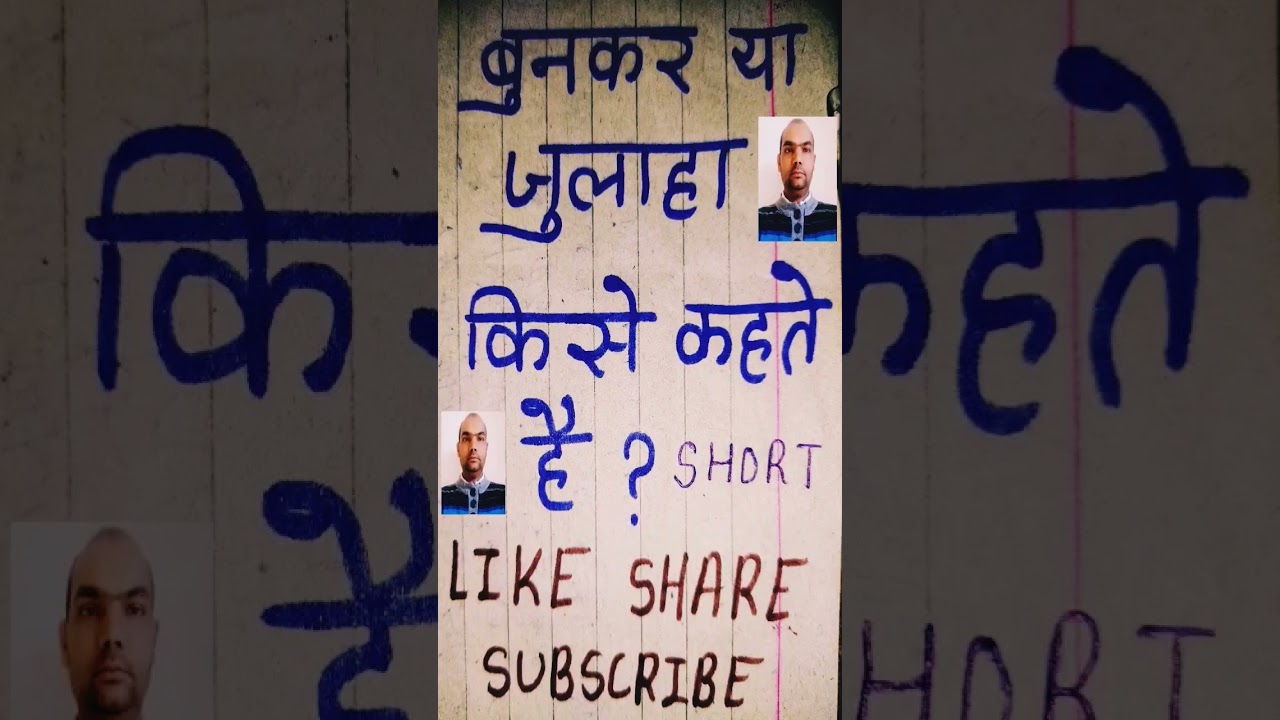 बुनकर या
जुलाहा
किसे कहते
है ? SHORT
LIKE SHARE
SUBSCRIBE